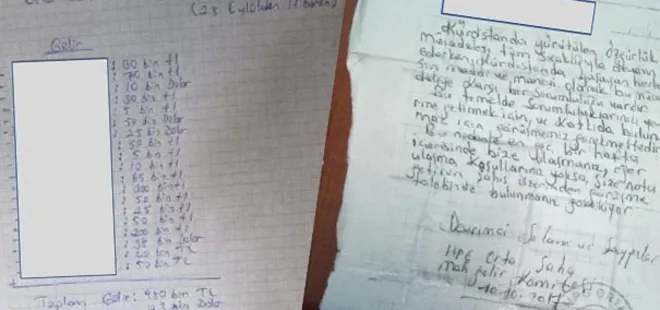 (25 Eylülden itibaren)
Gelir
: 30 bin tl
: 70 bin tl
: 10 bin Dolar
: 30 bin tl
: 5 bin tl
: 50 bin Dolar
: 25 bin Dolar
: 50 bin tl
: 5 bin tl
: 10 bin tl
: 65 bin tl
: 300 bin tl
: 50 bin tl
: 25 bin tl
: 50 bin tl
: 200 bin tl
: 38 bin Dolar
: 60 bin TL
: 50 bin TL
Toplam Gelir: bin TL
bin Dolar
Kürdistanda yürütülen özgürlük
mücadelesi tüm sıcaklığıyla devam
ederken, Kürdistanda yaşayan herke
sin maddi ve manevi olarak bu müca
deleye karşı bir sorumluluğu vardır
Bu temelde sorumluluklarınızı ye
rine getirmek için, ve katkıda bulun
mak için görüşmemiz gerekmektedir
Bu nedenle en geç bir hafta
içerisinde bize ulaşmanız, eğer
ulaşma koşullarınız yoksa, size notu
getiren şahıs üzerinden görüşme
talebinde bulunmanız gerekiyor
Devrimci Selam ve saygılar
HPG Orta Saha
Komitesi
10.10.2017